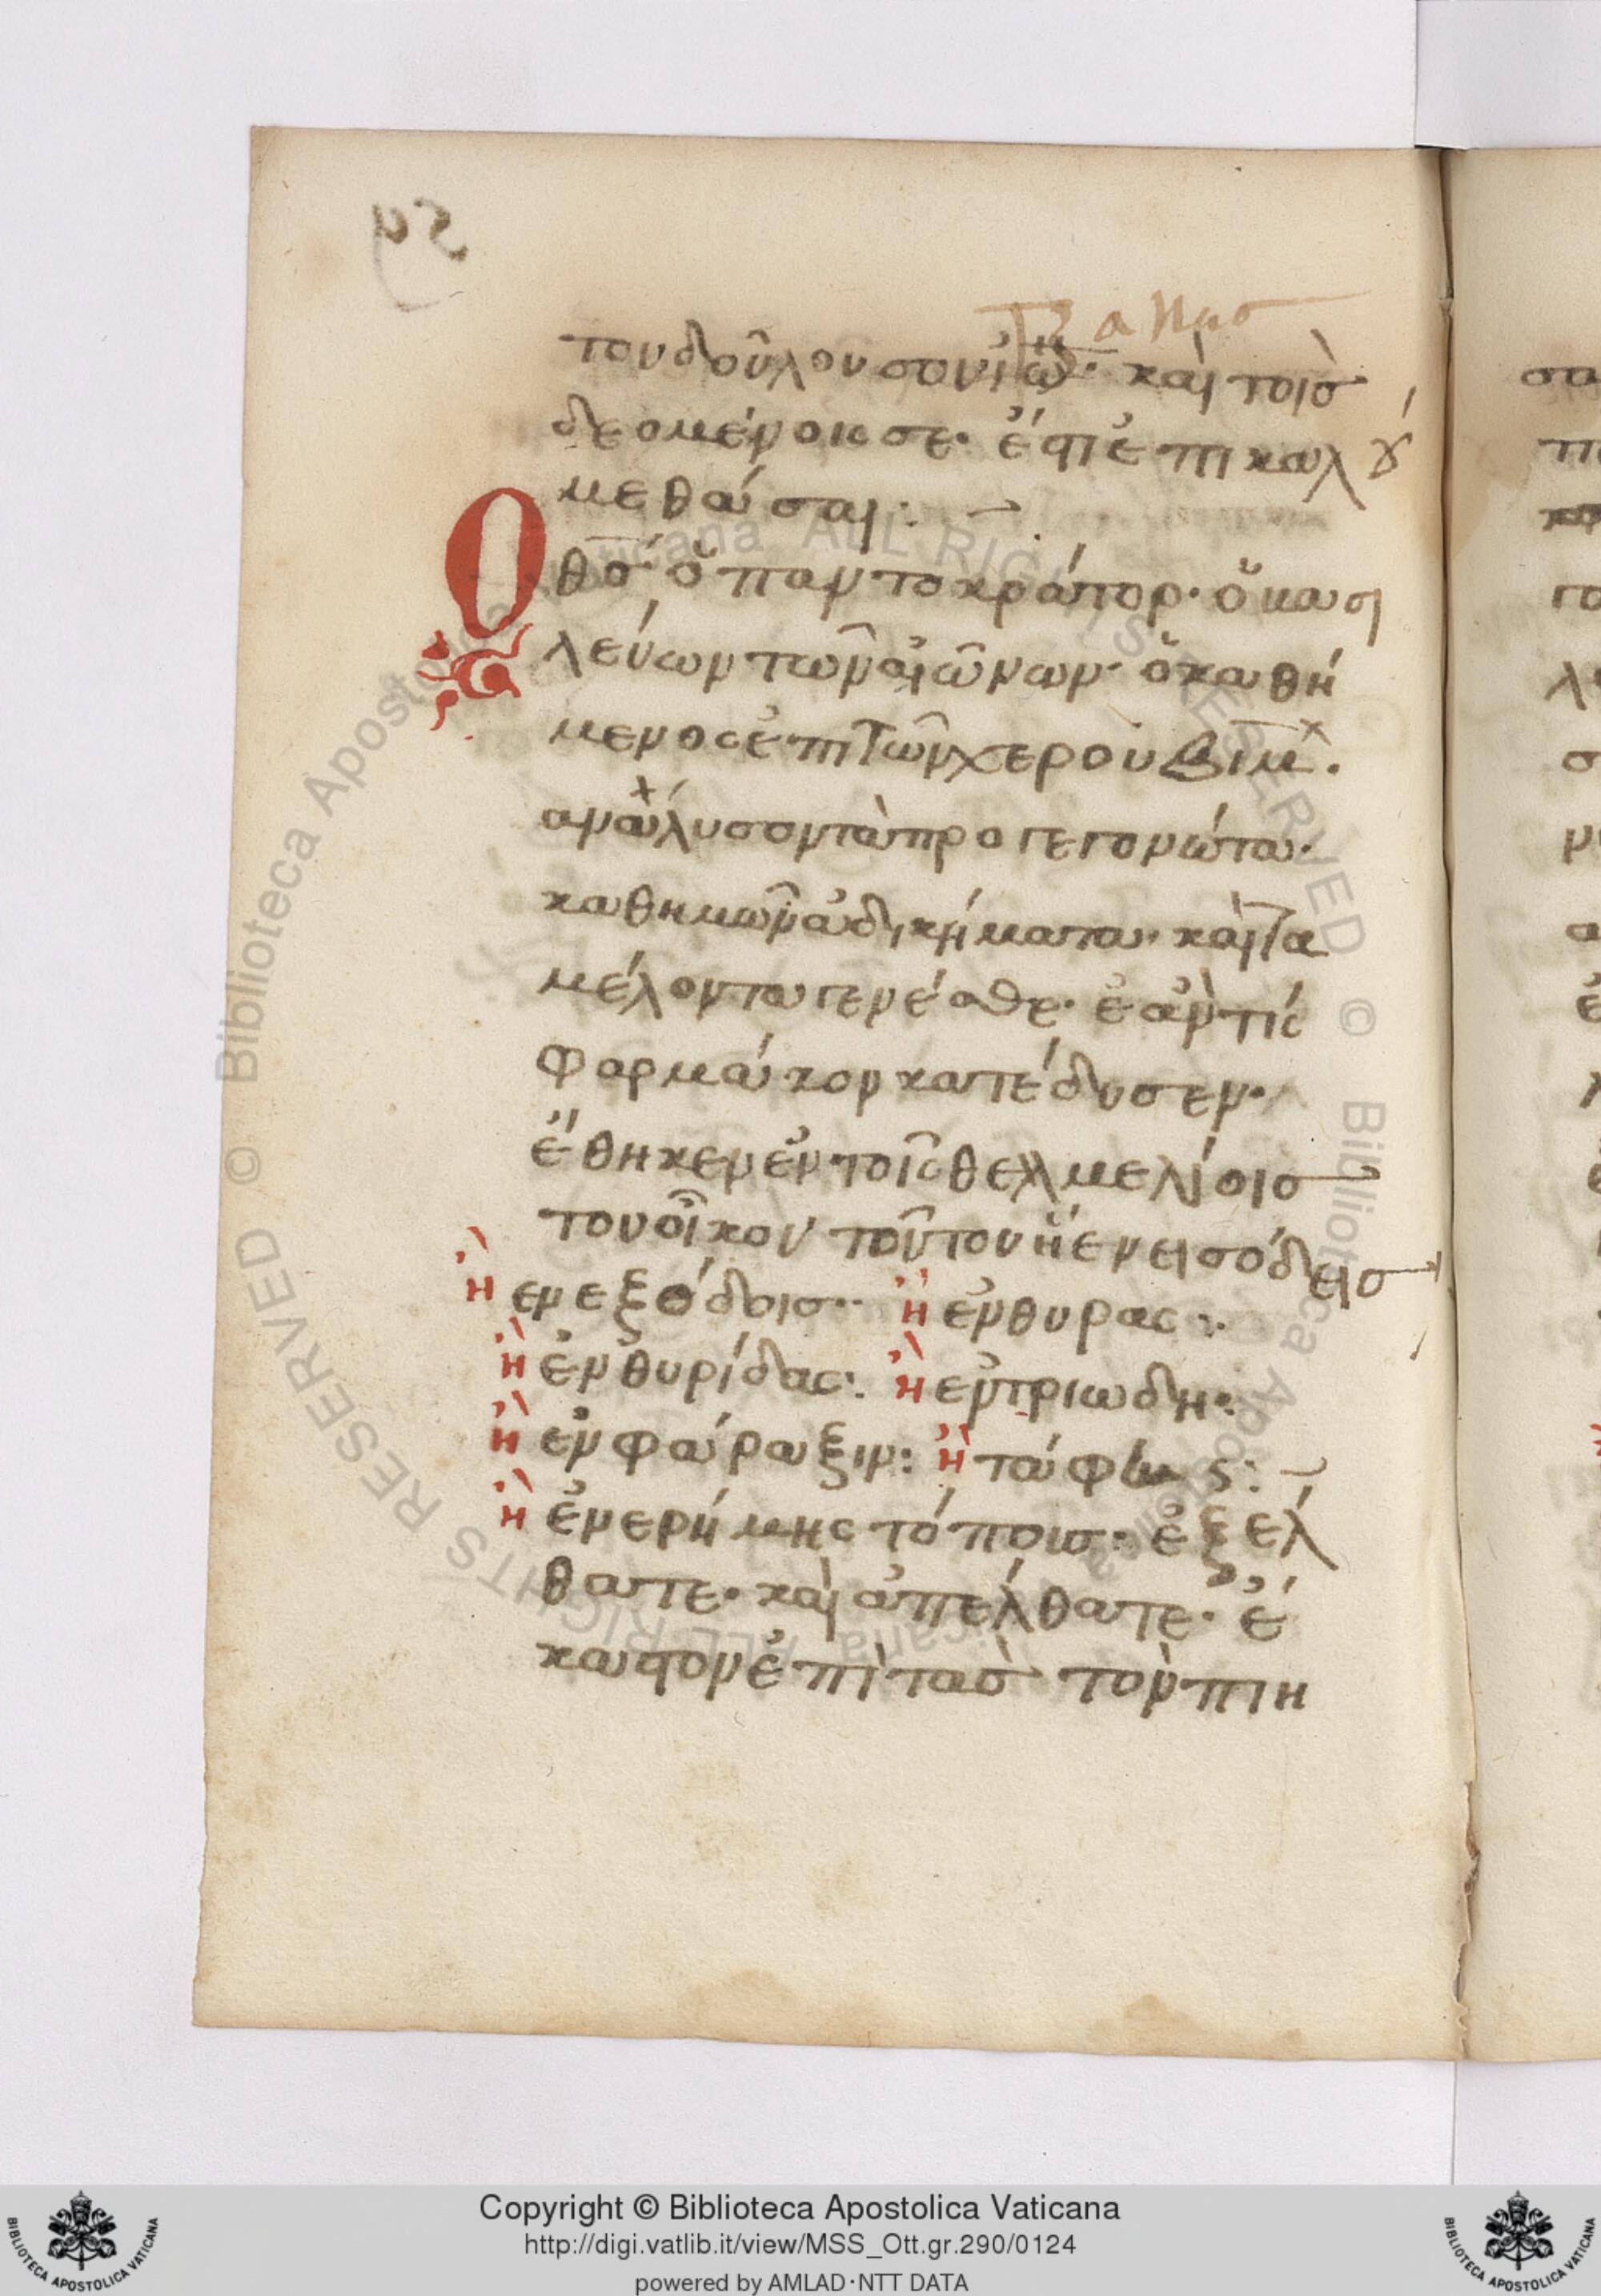 του δούλου σου ἰω· καὶ τοῖσ
δεομένοις σε· ἔστι ἐπικαλού
μεθά σαι:
Ο θσ ὁ παντοκράτορ· ὁ βασι
λεύων τῶν αἰώνων· ὁ καθή
μενος ἐπι τῶν χερουβιμ.
αναλύσον τὰ προγεγονώτα·
καθημῶν ἀδικήματα· καὶ τα
μέλοντα γενέσθε· ἐὰν τίς
φαρμάκον κατέδυσεν·
ἔθηκεν ἐν τοῖς θεμελίοισ
του οἴκου τοῦτου ἢ εν εισόδεισ
ἢ εν εξόδοισ· ἢ ἐν θυρας:
ἢ ἐν θυρίδας: ἢ εν τριωδη:
ἢ ἐν φάραξιν: ἢ τάφους:
ἢ ἐν ερήμης τόποισ· ἐξέλ
θατε· καὶ ἀπέλθατε· ἕ
καστον ἐπὶ τασ τὸν πιη
Copyright © Biblioteca Apostolica Vaticana
http://digi.vatlib.it/view/MSS_Ott.gr.290/0124
powered by AMLAD·NTT DATA